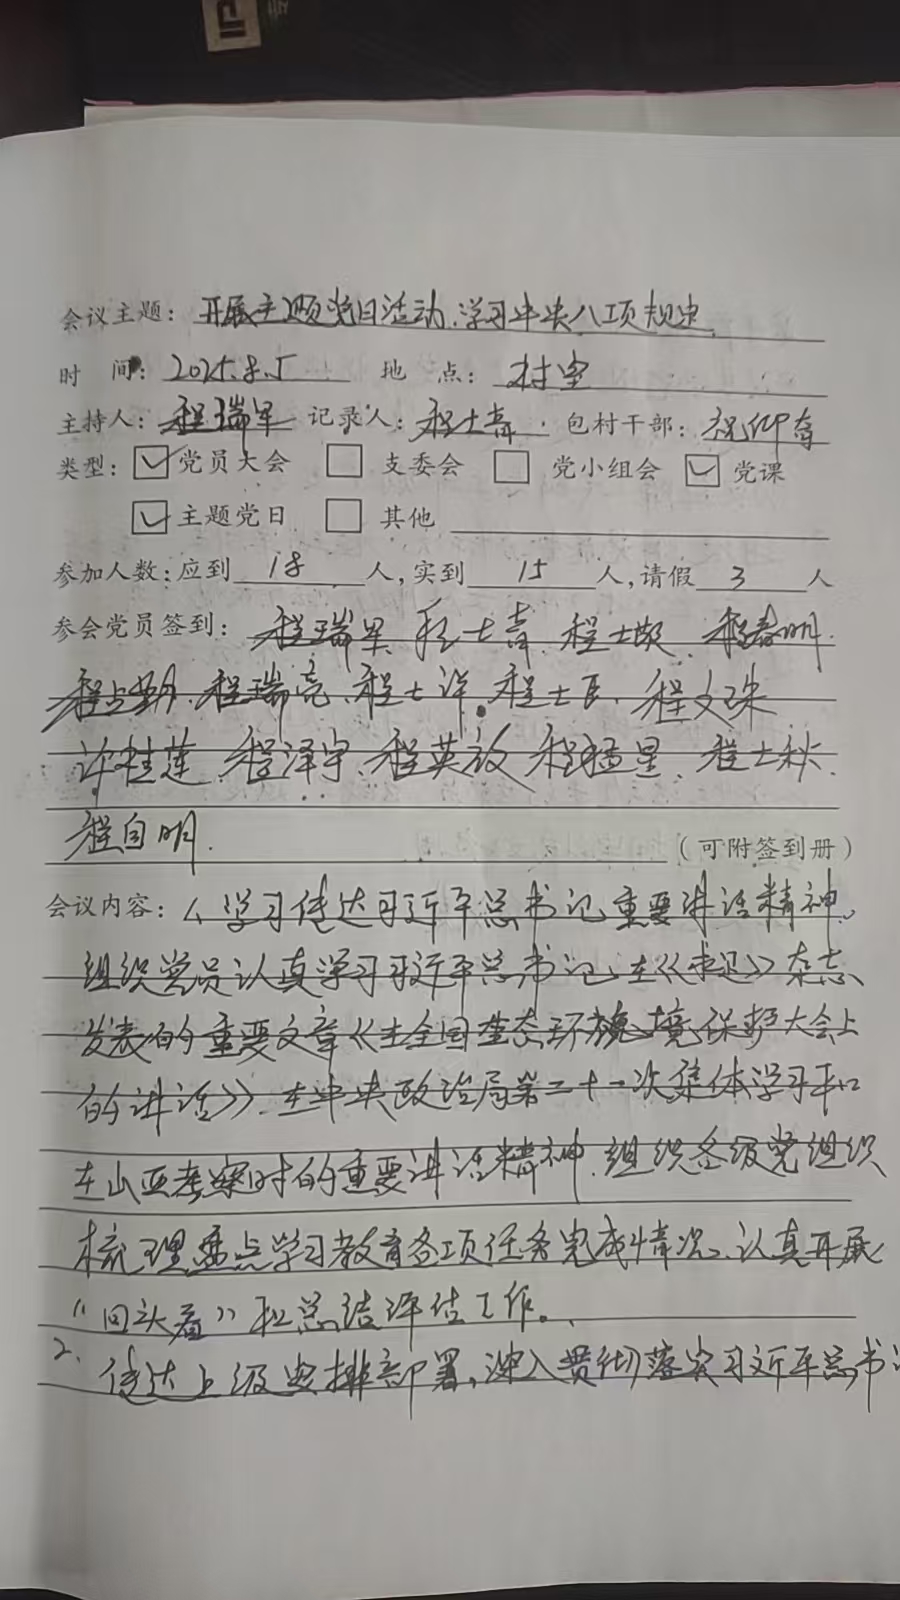 会议主题：开展主题党日活动.学习中央八项规定
时 间：2025.8.5 地 点：村室
主持人：程瑞军 记录人：程士青 包村干部：祝仰奇
类型：☑党员大会 □支委会 □党小组会 ☑党课
☑主题党日 □其他
参加人数：应到18人，实到15人，请假3人
参会党员签到：程瑞军、程士青、程士 、程春明、
程占勤、程瑞亮、程士洋、程士民、程文珠
许桂莲、程泽宇、程英放 程猛星、程士秋、
程自明. （可附签到册）
会议内容：1、学习传达习近平总书记重要讲话精神、
组织党员认真学习习近平总书记、在《求是》杂志
发表的重要文章《在全国生态环境保护大会上
的讲话》、在中央政治局第二十一次集体学习和
在山西考察时的重要讲话精神、组织各级党组织
梳理重点学习教育各项任务完成情况、认真开展
“回头看”和总结评估工作。
2、传达上级安排部署，深入贯彻落实习近平总书